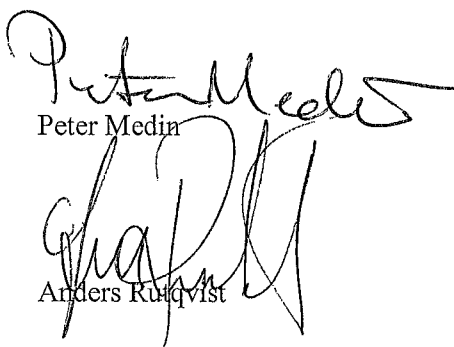 Peter Medin
Peter Medin
Anders Rutqvist